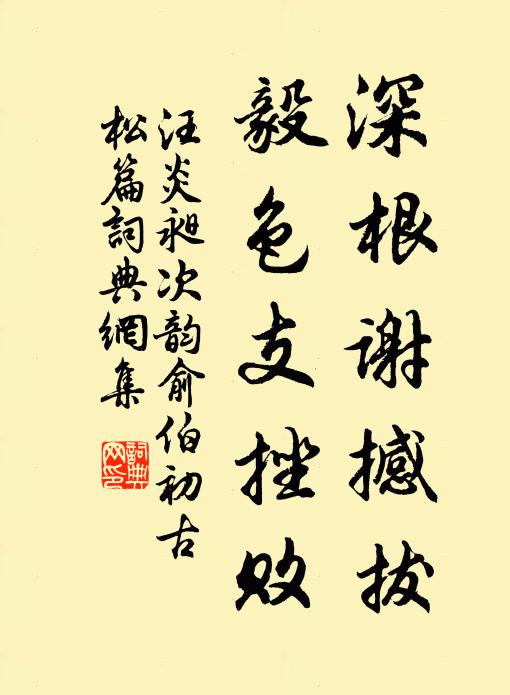 深根谢撼拔
毅色支挫败
汪炎昶次韵俞伯初古
松篇词典網集
詞典
网印